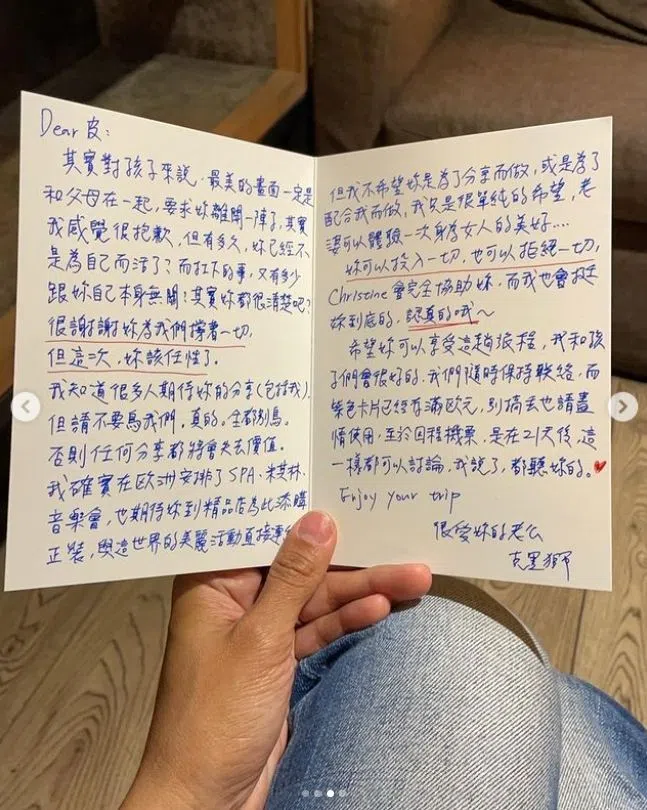 Dear 皮:
其實對孩子來說,最美的畫面一定是
和父母在一起,要求妳離開一陣子,其實
我感覺很抱歉,但有多久,妳已經不
是為自己而活了?而扛下的事,又有多少
跟妳自己本身無關?其實妳都很清楚吧?
很謝謝妳為我們撐著一切,
但這一次,妳該任性了。
我知道很多人期待妳的分享(包括我),
但請不要鳥我們,真的。全都別鳥。
否則任何分享都將會失去價值。
我確實在歐洲安排了SPA、米其林、
音樂會,也期待妳到精品店為此添購
正裝,與這世界的美麗活動直接
但我不希望妳是為了分享而做,或是為了
配合我而做,我只是很單純的希望,老
婆可以體驗一次身為女人的美好....
妳可以投入一切,也可以拒絕一切,
Christine會完全協助妳,而我也會挺
妳到底的,認真的哦~
希望妳可以享受這趟旅程,我和孩
子們會很好的,我們隨時保持聯絡,而
紫色卡片已經存滿歐元,別搞丟也請盡
情使用,至於回程機票,是在21天後,這
一樣都可以討論,我說了,都聽妳的。❤
Enjoy your trip
很愛妳的老公
克里獅